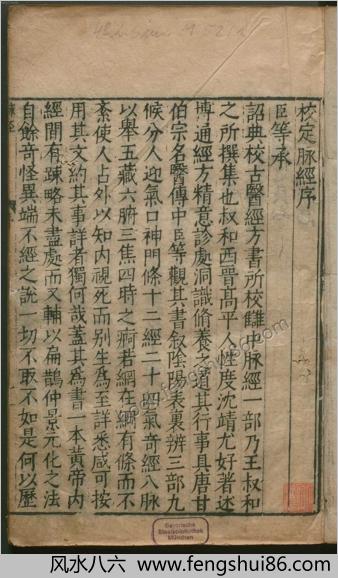 校定脉經序
臣等承
詔典校古醫經方書所校讎中脉經一部乃王叔和
之所撰集也叔和西晉髙平人性度沈靖尤好著述
博通經方精意診處洞識脩養之道其行事具唐甘
伯宗名醫傳中臣等觀其書叙陰陽表裏辨三部九
候分人迎氣口神門條十二經二十四氣奇經八脉
以舉五藏六腑三焦四時之痾若網在綱有條而不
紊使人占外以知内視死而别生爲至詳悉咸可按
用其文約其事詳者獨何哉盖其爲書一本黄帝内
經間有疎略未盡處而又輔以扁鵲仲景元化之法
自餘奇怪異端不經之說一切不取不如是何以歷
Bayerische
Staatsbibliothek
München
www.fengshui86.com
风水八六－fengshui86.com